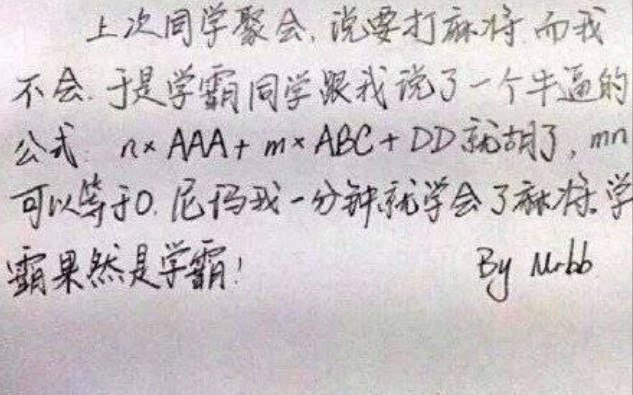 上次同学聚会,说要打麻将.而我
不会.于是学霸同学跟我说了一个牛逼的
公式 n×AAA+m×ABC+DD就胡了,mn
可以等于0.尼玛我一分钟就学会了麻将.学
霸果然是学霸!
By Mrbb